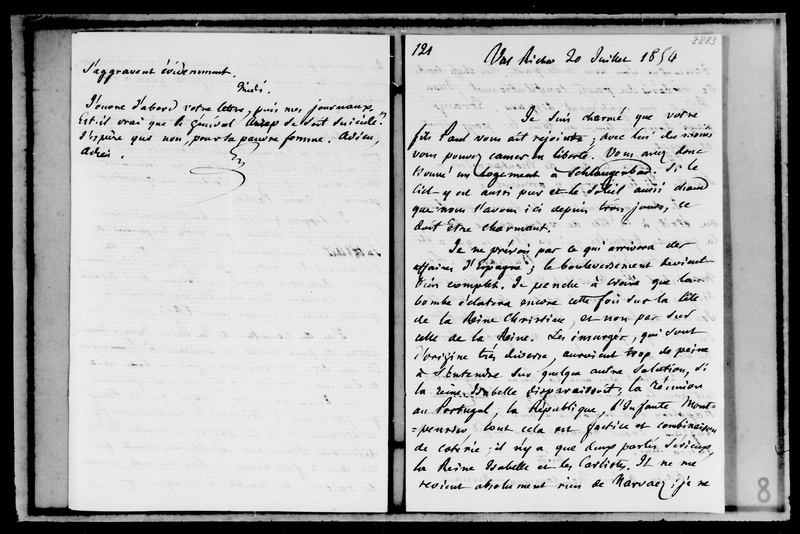 s'aggravent évidemment.
Midi.
J'ouvre d'abord votre lettre, puis mes journaux.
Est-il vrai que le général se soit suicidé?
J'espère que non, pour sa pauvre femme. Adieu,
Adieu.
3883
121 Val Richer 20 Juillet 1854
Je suis charmé que votre
fils Paul vous ait rejointe; avec lui du moins
vous pouvez causer en liberté. Vous avez donc
trouvé un logement à Schlangenbad. Si le
Ciel y est aussi pur et le soleil aussi chaud
que nous l'avons ici depuis trois jours, ce
doit être charmant.
Je ne prévois pas ce qui arrivera des
affaires d'Espagne; le bouleversement devient
bien complet. Je penche à croire que la
bombe éclatera encore cette fois sur la tête
de la Reine Christine, et non pas sur
celle de la Reine. Les insurgés, qui sont
d'origine très diverse, auroient trop de peine
à s'entendre sur quelque autre solution, si
la reine Isabelle disparaissoit; la Réunion
au Portugal, la République, l'Infante Mont-
=pensier, tout cela est factice et combinaison
de coterie; il n'y a que deux partis sérieux,
la Reine Isabelle et les Carlistes. Il ne me
revient absolument rien de Narvaez; je ne
8